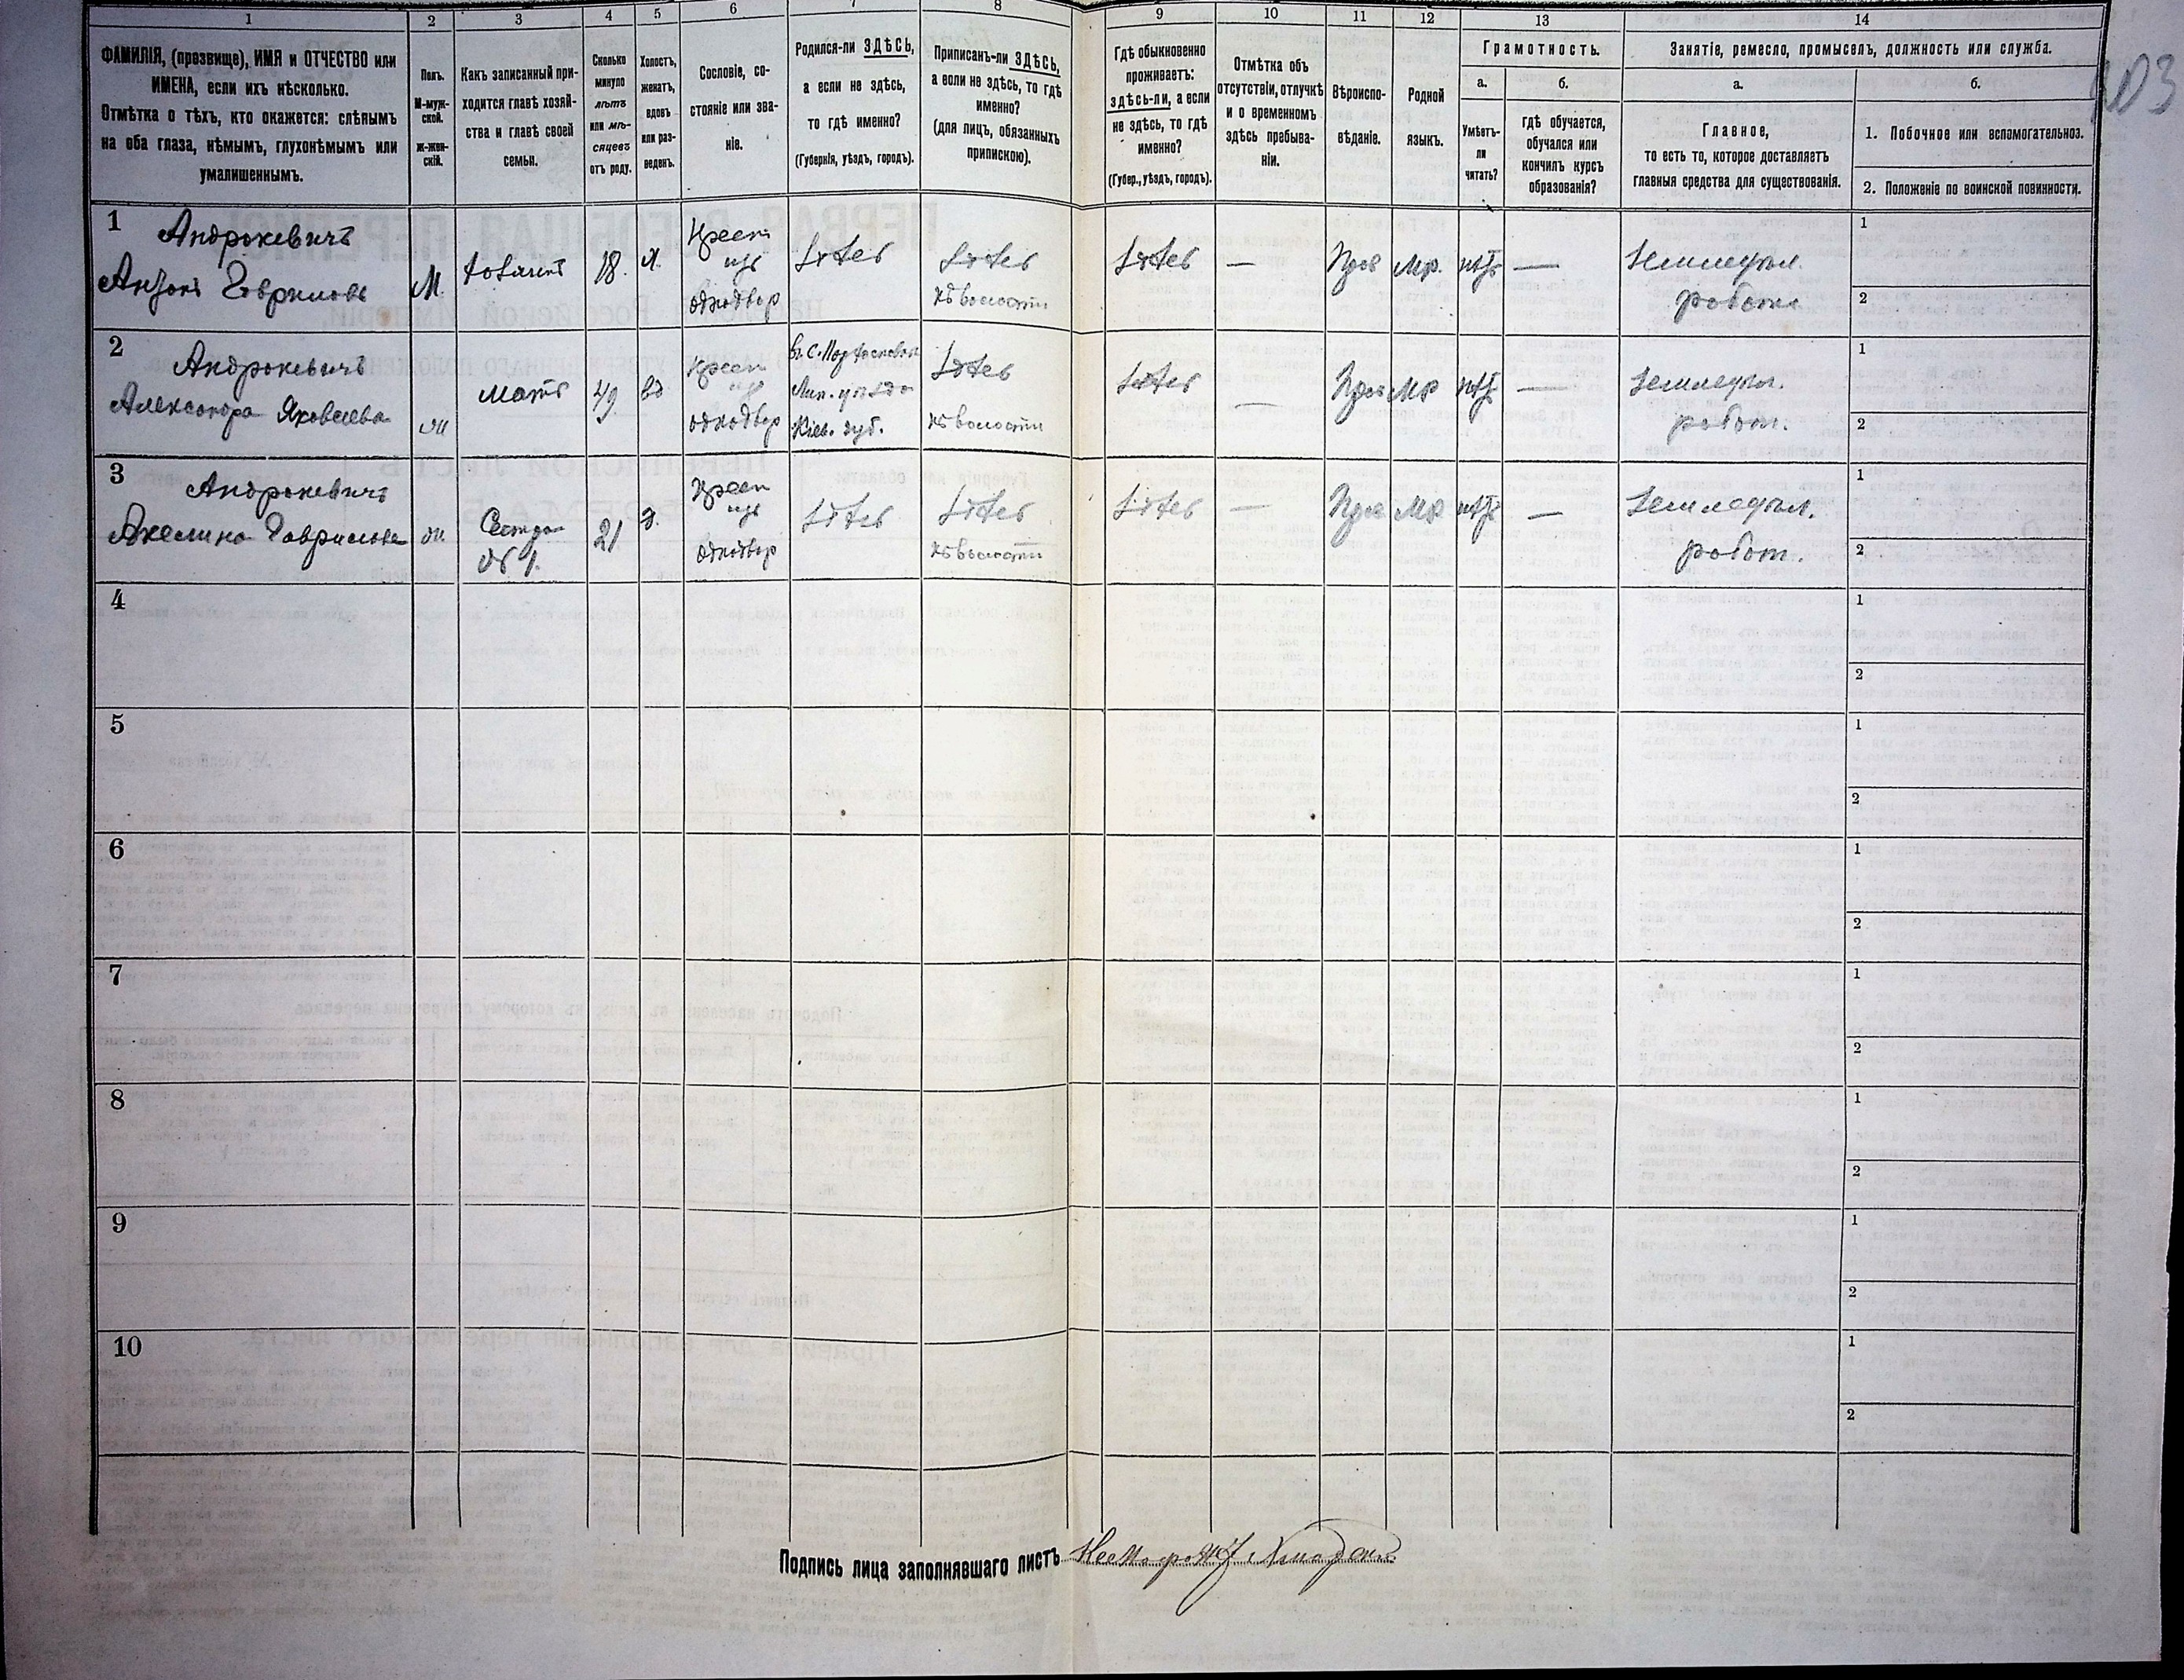 1
2
3
4
5
6
7
8
9
10
11
12
13
14
103
ФАМИЛІЯ, (прозвище), ИМЯ и ОТЧЕСТВО или
ИМЕНА, если ихъ нѣсколько.
Отмѣтка о тѣхъ, кто окажется: слѣпымъ
на оба глаза, нѣмымъ, глухонѣмымъ или
умалишеннымъ.
Полъ.
М-муж-
ской.
ж-жен-
скій.
Какъ записанный при-
ходится главѣ хозяй-
ства и главѣ своей
семьи.
Сколько
минуло
лѣтъ
или мѣ-
сяцевъ
отъ роду.
Холостъ,
женатъ,
вдовъ
или раз-
веденъ.
Сословіе, со-
стояніе или зва-
ніе.
Родился-ли ЗДѢСЬ,
а если не здѣсь,
то гдѣ именно?
(Губернія, уѣздъ, городъ).
Приписанъ-ли ЗДѢСЬ,
а если не здѣсь, то гдѣ
именно?
(для лицъ, обязанныхъ
припискою).
Гдѣ обыкновенно
проживаетъ:
здѣсь-ли, а если
не здѣсь, то гдѣ
именно?
(Губер., уѣздъ, городъ).
Отмѣтка объ
отсутствіи, отлучкѣ
и о временномъ
здѣсь пребыва-
ніи.
Вѣроиспо-
вѣданіе.
Родной
языкъ.
Грамотность.
а.
Умѣетъ-
ли
читать?
б.
гдѣ обучается,
обучался или
кончилъ курсъ
образованія?
Занятіе, ремесло, промыселъ, должность или служба.
а.
Главное,
то есть то, которое доставляетъ
главныя средства для существованія.
б.
1. Побочное или вспомогательное.
2. Положеніе по воинской повинности.
1
Андрокевичъ
Антонъ Гавриловъ
М.
хозяинъ
18.
х.
Крест
изъ
однодвор
здѣсь
здѣсь
къ волости
здѣсь
—
Прав
Мр.
нѣтъ
—
Земледѣл.
работн.
1
2
2
Андрокевичъ
Александра Яковлева
ж
мать
49
вд
Крест
изъ
однодвор
Лип. уѣзда
Кіев. губ.
здѣсь
къ волости
здѣсь
—
Прав
Мр
нѣтъ
—
Земледѣл.
работн.
1
2
3
Андрокевичъ
Акелина Гаврилова
ж
Сестра
№ 1.
21
д.
Крест
изъ
однодвор
здѣсь
здѣсь
къ волости
здѣсь
—
Прав
Мр
нѣтъ
—
Земледѣл.
работн.
1
2
4
1
2
5
1
2
6
1
2
7
1
2
8
1
2
9
1
2
10
1
2
Подпись лица заполнявшаго листъ